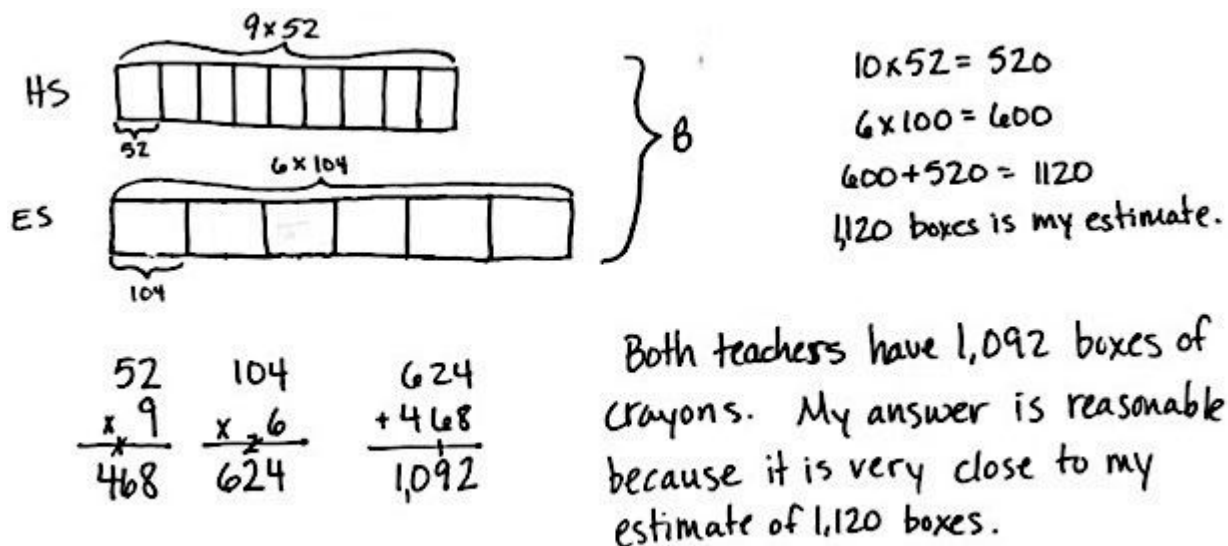 9 x 52
HS
52
B
6 x 104
ES
104
10 x 52 = 520
6 x 100 = 600
600 + 520 = 1120
1,120 boxes is my estimate.
52
x 9
468
104
x 6
2
624
624
+ 468
1
1,092
Both teachers have 1,092 boxes of
crayons. My answer is reasonable
because it is very close to my
estimate of 1,120 boxes.